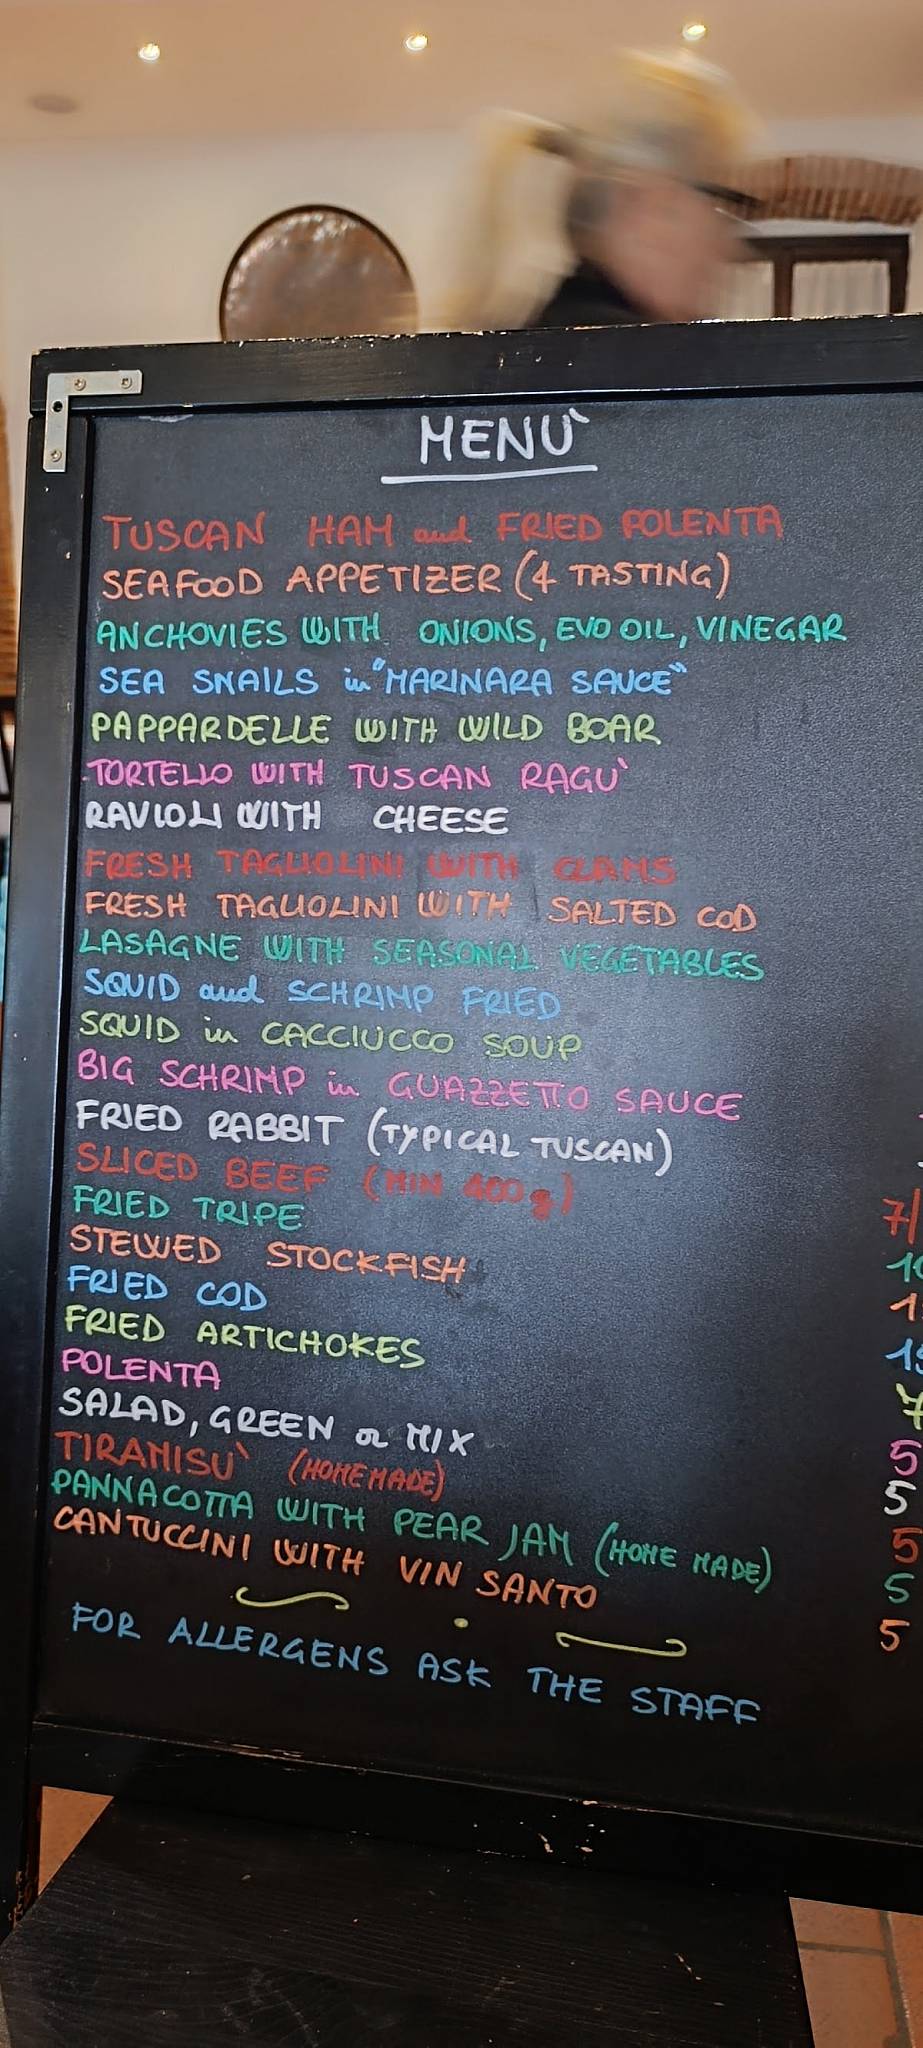 MENÙ
TUSCAN HAM and FRIED POLENTA
SEAFOOD APPETIZER (4 TASTING)
ANCHOVIES WITH ONIONS, EVO OIL, VINEGAR
SEA SNAILS in "MARINARA SAUCE"
PAPPARDELLE WITH WILD BOAR
TORTELLO WITH TUSCAN RAGU`
RAVIOLI WITH CHEESE
FRESH TAGLIOLINI WITH CLAMS
FRESH TAGLIOLINI WITH SALTED COD
LASAGNE WITH SEASONAL VEGETABLES
SQUID and SCHRIMP FRIED
SQUID in CACCIUCCO SOUP
BIG SCHRIMP in GUAZZETTO SAUCE
FRIED RABBIT (TYPICAL TUSCAN)
SLICED BEEF (MIN 400g) 7/
FRIED TRIPE
STEWED STOCKFISH
FRIED COD
FRIED ARTICHOKES 7
POLENTA 5
SALAD, GREEN or MIX 5
TIRAMISU` (HOMEMADE) 5
PANNACOTTA WITH PEAR JAM (HOME MADE) 5
CANTUCCINI WITH VIN SANTO 5
FOR ALLERGENS ASK THE STAFF